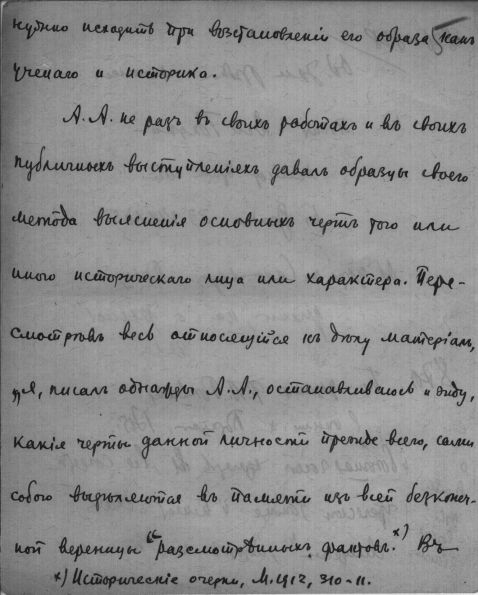 нужно исходить при возстановленіи его образа, какъ
ученаго и историка.
А. А. не разъ въ своихъ работахъ и въ своихъ
публичныхъ выступленіяхъ давалъ образцы своего
метода выясненія основныхъ чертъ того или
иного историческаго лица или характера. Пере-
смотрѣвъ весь относящійся къ дѣлу матеріалъ,
„я, писалъ однажды А. А., останавливаюсь и жду,
какія черты данной личности прежде всего, сами
собою выдѣляются въ памяти изъ всей безконеч-
ной вереницы разсмотрѣнныхъ фактовъ“. х) Въ
х) Историческіе очерки, М. 1912, 310-11.